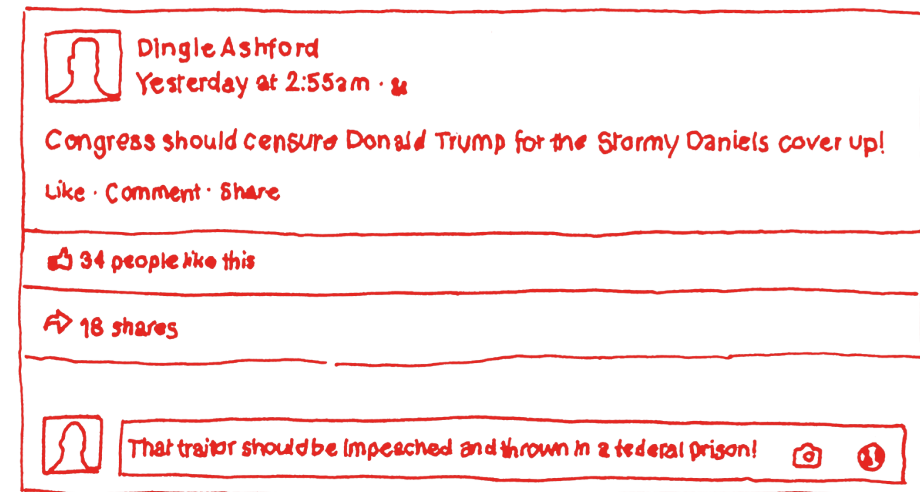 Dingle Ashford
Yesterday at 2:55am ·
Congress should censure Donald Trump for the Stormy Daniels cover up!
Like · Comment · Share
34 people like this
18 shares
That traitor should be impeached and thrown in a federal prison!